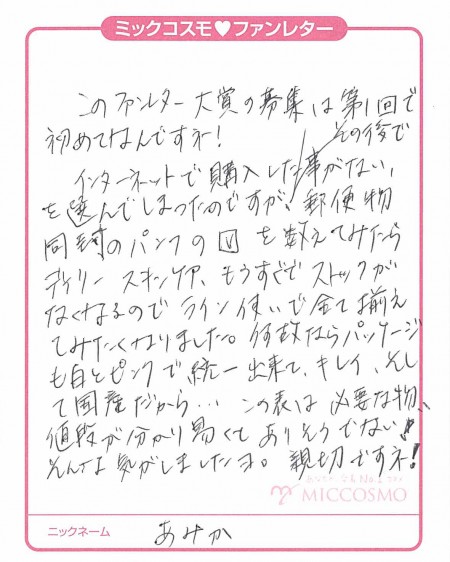 ミックコスモ♥ファンレター
このファンレター大賞の募集は第1回で
初めてなんですネー!
その後で
インターネットで購入した事がない、
を選んでしまったのですが、郵便物
同封のパンフの☑を数えてみたら
デイリースキンケア、もうすぐでストックが
なくなるのでライン使いで全て揃え
てみたくなりました。何故ならパッケージ
も白とピンクで統一出来て、キレイ、そし
て国産だから… この表は必要な物、
値段が分かり易くてありそうでない♪
そんな気がしましたヨ。親切ですネ!
MICCOSMO
ニックネーム あみか